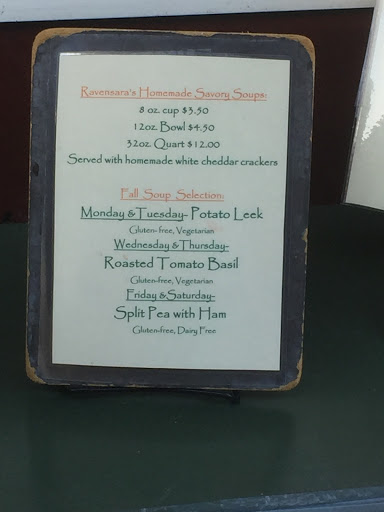 Ravensara's Homemade Savory Soups:
8 oz. cup $3.50
12oz. Bowl $4.50
32oz. Quart $12.00
Served with homemade white cheddar crackers
Fall Soup Selection:
Monday & Tuesday- Potato Leek
Gluten- free, Vegetarian
Wednesday &Thursday-
Roasted Tomato Basil
Gluten-free, Vegetarian
Friday &Saturday-
Split Pea with Ham
Gluten-free, Dairy Free